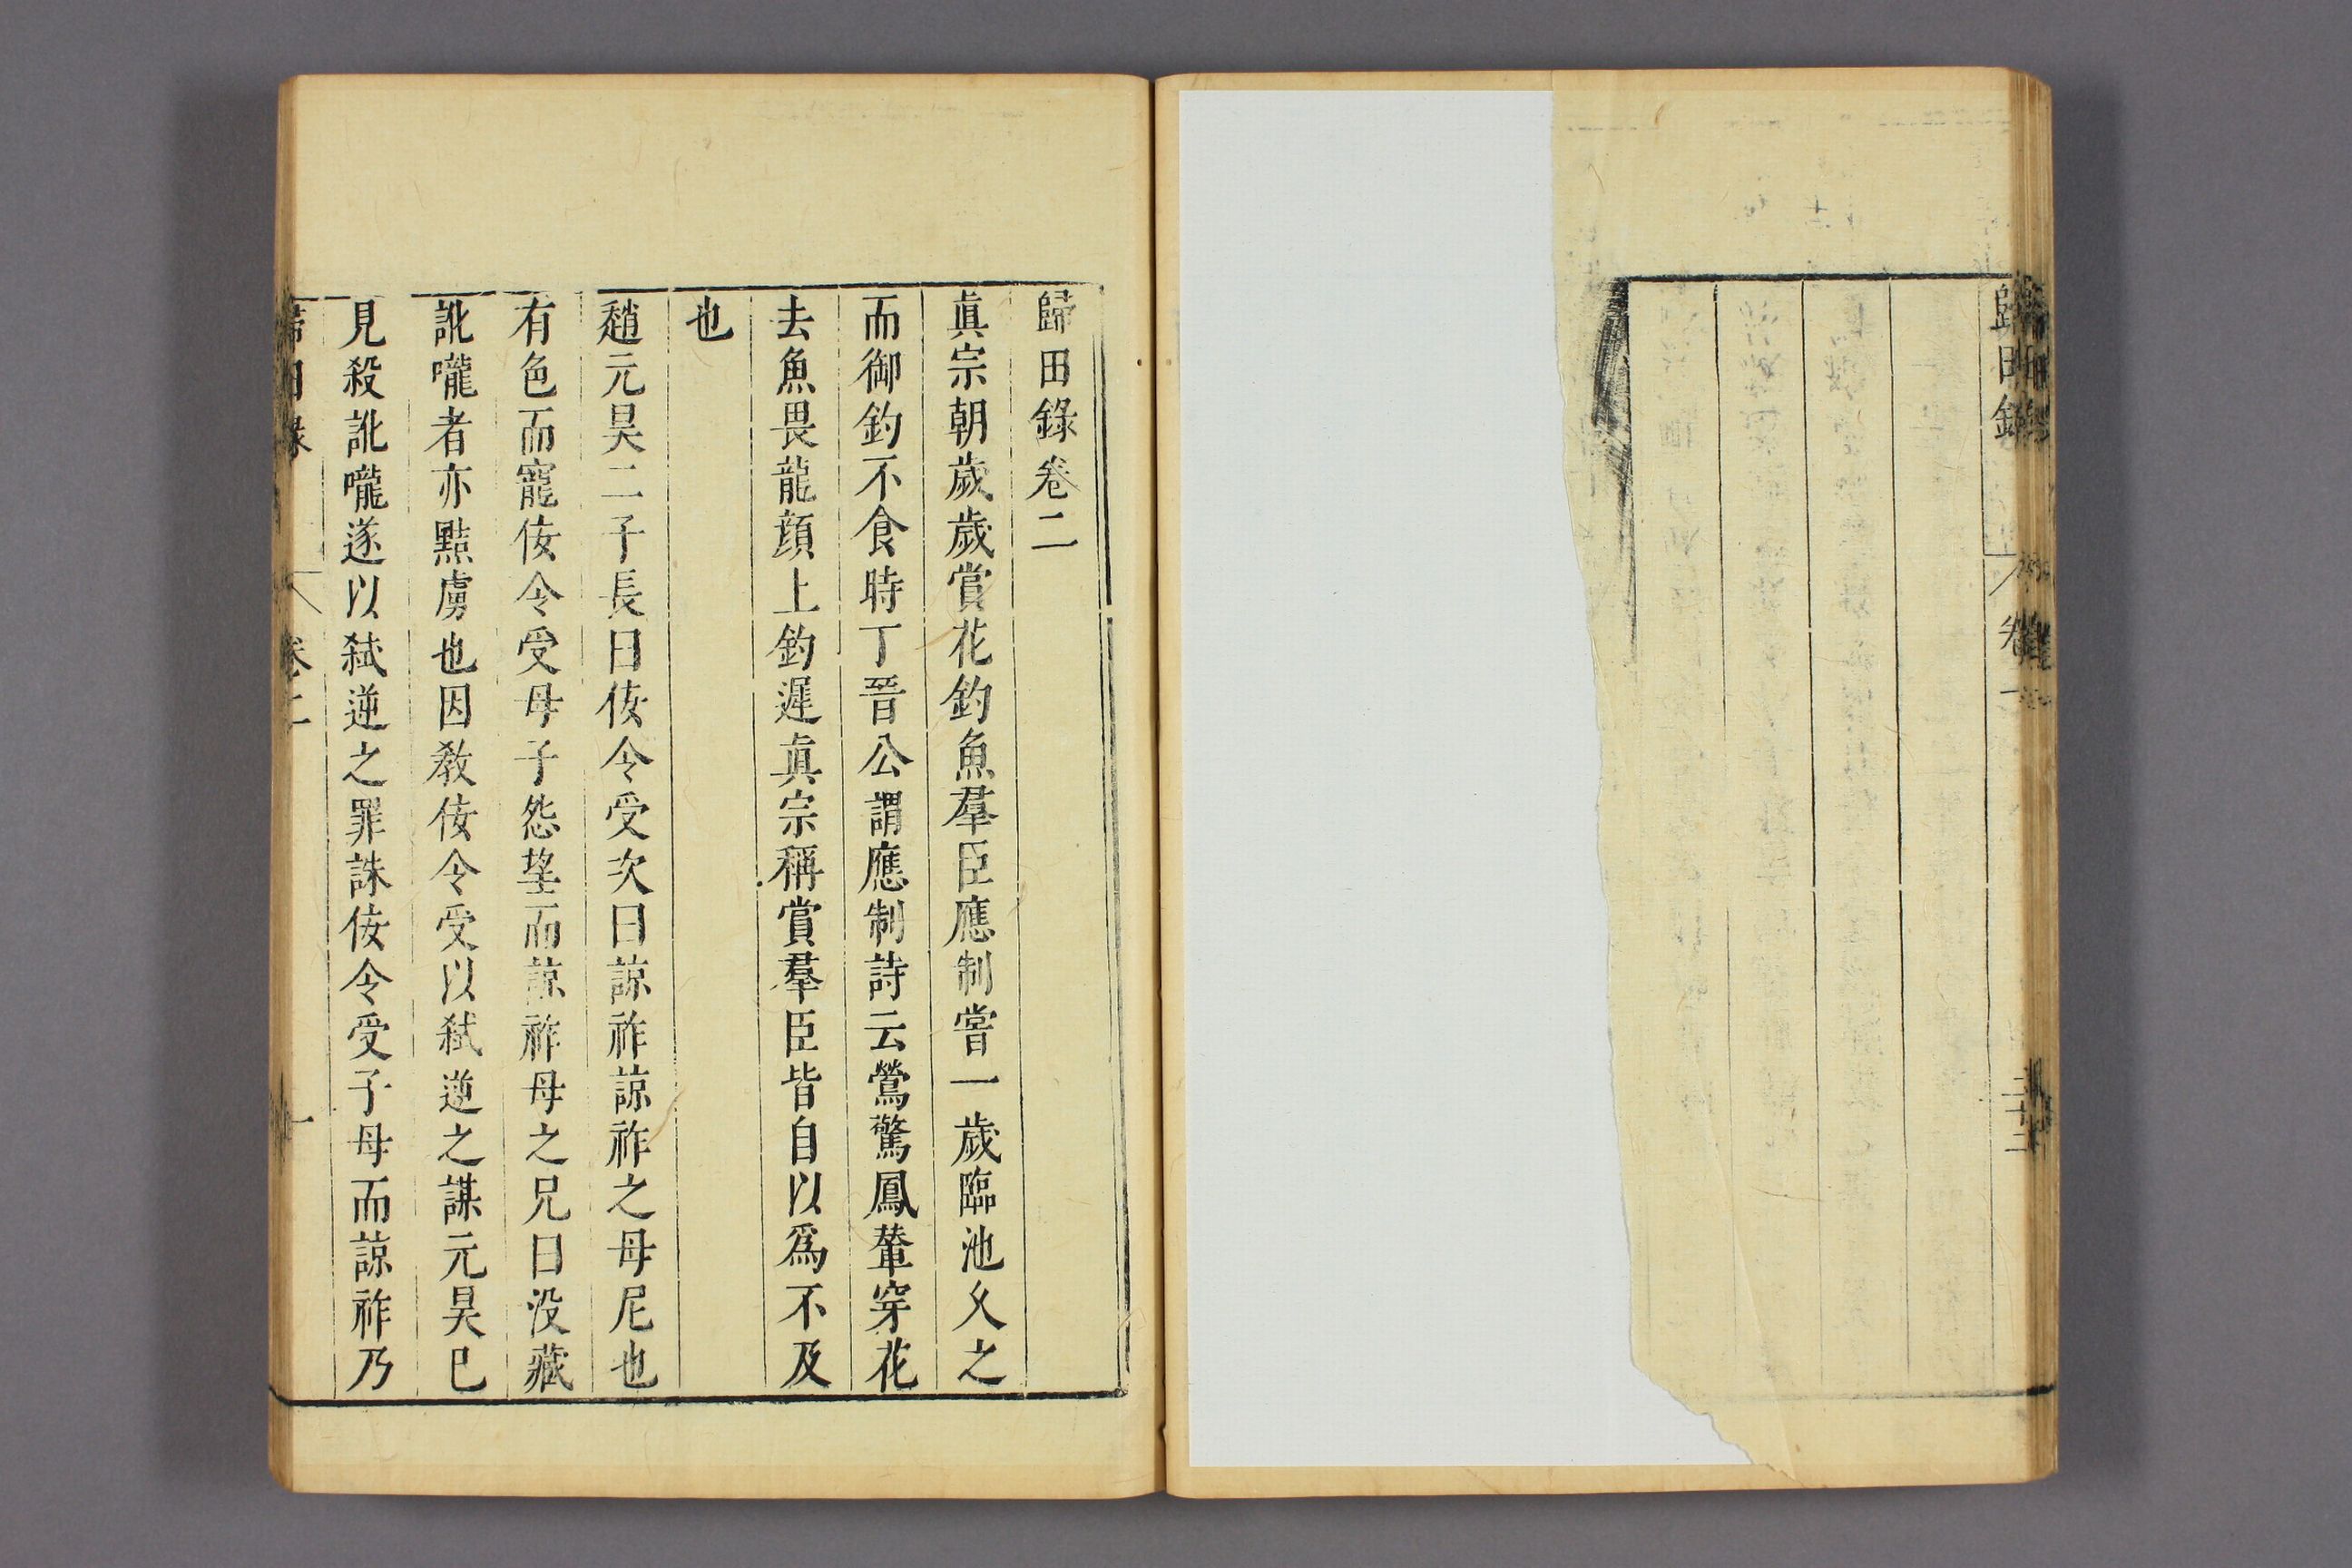 歸田錄
卷一
二十二
歸田錄卷二
眞宗朝歲歲賞花釣魚羣臣應制嘗一歲臨池久之
而御釣不食時丁晉公謂應制詩云鶯驚鳳輦穿花
去魚畏龍顔上釣遲眞宗稱賞羣臣皆自以爲不及
也
趙元昊二子長曰佞令受次曰諒祚諒祚之母尼也
有色而寵佞令受母子怨望而諒祚母之兄曰没藏
訛嚨者亦黠虜也因教佞令受以弑逆之謀元昊已
見殺訛嚨遂以弑逆之罪誅佞令受子母而諒祚乃
歸田錄
卷二
一